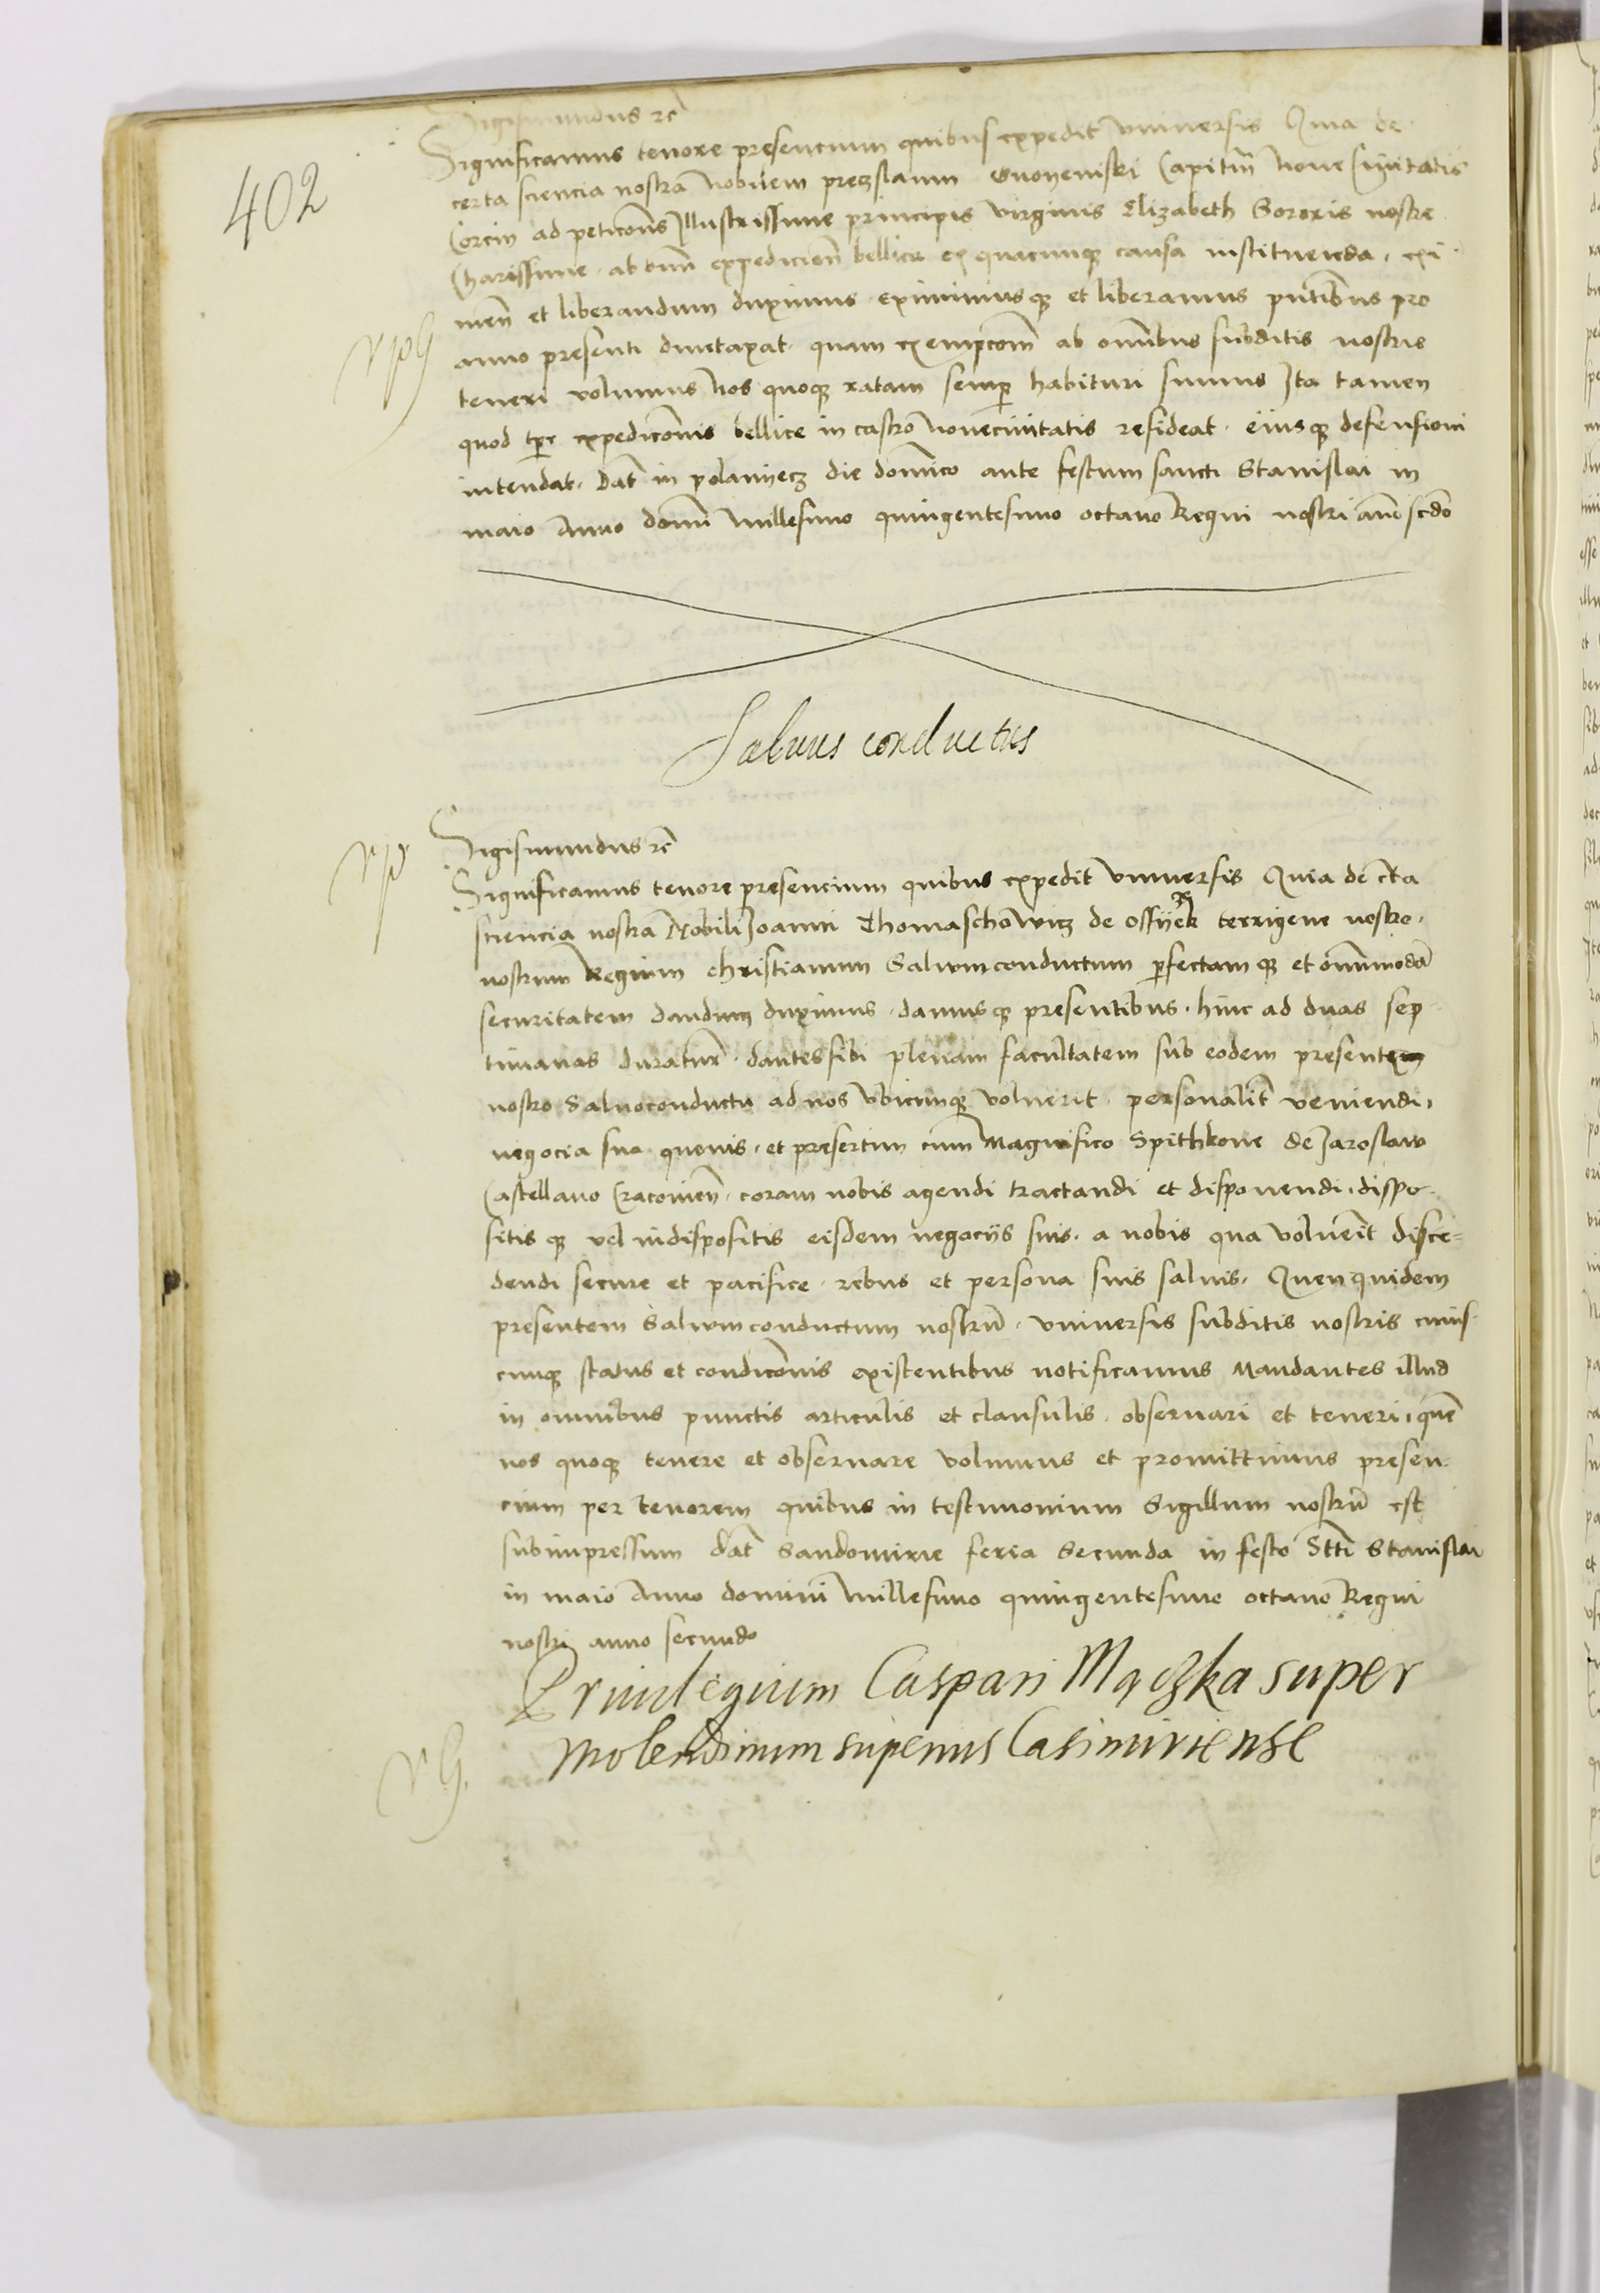 402
Sigismundus rc
Significamus tenore presencium quibus expedit vniuersis Quia de
certa sciencia nostra Nobilem preczslaum Gnoyenski Capitm Noue Ciuitatis
Corcin ad peticons Illustrissime principis virginis Elizabeth Sororis nostre
Charissime ab omi expedicion bellica ex quacunq causa instituenda exi
men et liberandum duximus eximimusq et liberamus pntibus pro
vpG
anno presenti duntaxat quam exempcom ab omnibus subditis nostris
teneri volumus Nos quoq ratam semp habituri sumus Ita tamen
quod tpe expediconis bellice in castro Noueciuitatis resideat eiusq defensioni
intendat Dat in polanyecz die dominico ante festum sancti Stanislai in
maio Anno domi Millesimo quingentesimo octauo Regni nostri ano scdo
Saluus conductus
vp
Sigismundus rc
Significamus tenore presencium quibus expedit vniuersis Quia de cta
sciencia nostra Nobili Joanni Thomaschowicz de Ossyek terrigene nostro
nostrum Regium christianum Saluumconductum pfectamq et omnimoda
securitatem dandum duximus damusq presentibus hinc ad duas sep
timanas duratur dantes sibi plenam facultatem sub eodem presente
nostro Saluoconductu ad nos vbicunq voluerit personalit veniendi
negocia sua queuis et presertim cum Magnifico Spithkone de Jaroslaw
Castellano Cracouien coram nobis agendi tractandi et disponendi dispo
sitisq vel indispositis eisdem negocys suis a nobis qua volueit disce=
dendi secure et pacifice rebus et persona suis saluis Quenquidem
presentem Saluumconductum nostru vniuersis subditis nostris cuius
cunq status et condiconis existentibus notificamus Mandantes illud
in omnibus punctis articulis et clausulis obseruari et teneri que
nos quoq tenere et obseruare volumus et promittimus presen
cium per tenorem quibus in testimonium Sigillum nostru est
subimpressum Dat Sandomirie feria Secunda in festo Stti Stanislai
in maio Anno domini Millesimo quingentesimo octauo Regni
nostri anno secundo
Priuilegium Caspari Mączka super
vG.
Molendinum superius Casimiriense